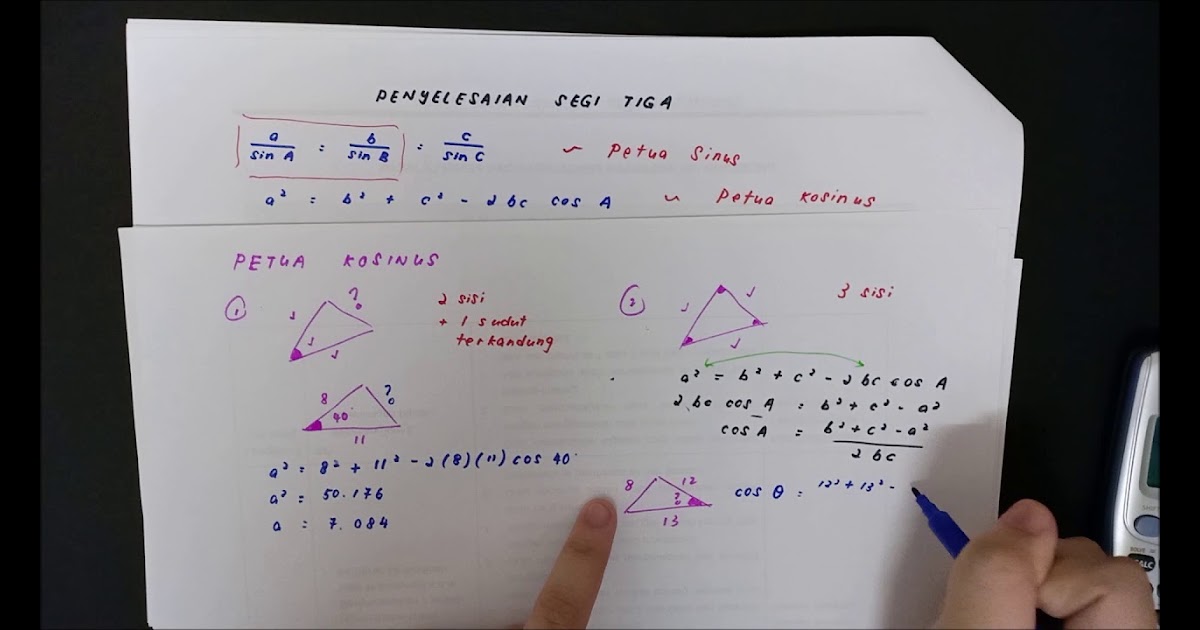 PENYELESAIAN SEGI TIGA
a/sin A = b/sin B = c/sin C ~ Petua Sinus
a² = b² + c² - 2bc cos A ~ Petua Kosinus
PETUA KOSINUS
① ?
2 sisi
+ 1 sudut
terkandung
8 40° ?
11
a² = 8² + 11² - 2(8)(11) cos 40°
a² = 50.176
a = 7.084
② 3 sisi
a² = b² + c² - 2bc cos A
2bc cos A = b² + c² - a²
cos A = b² + c² - a² / 2bc
8 12
?
13
cos θ = 12² + 13² -